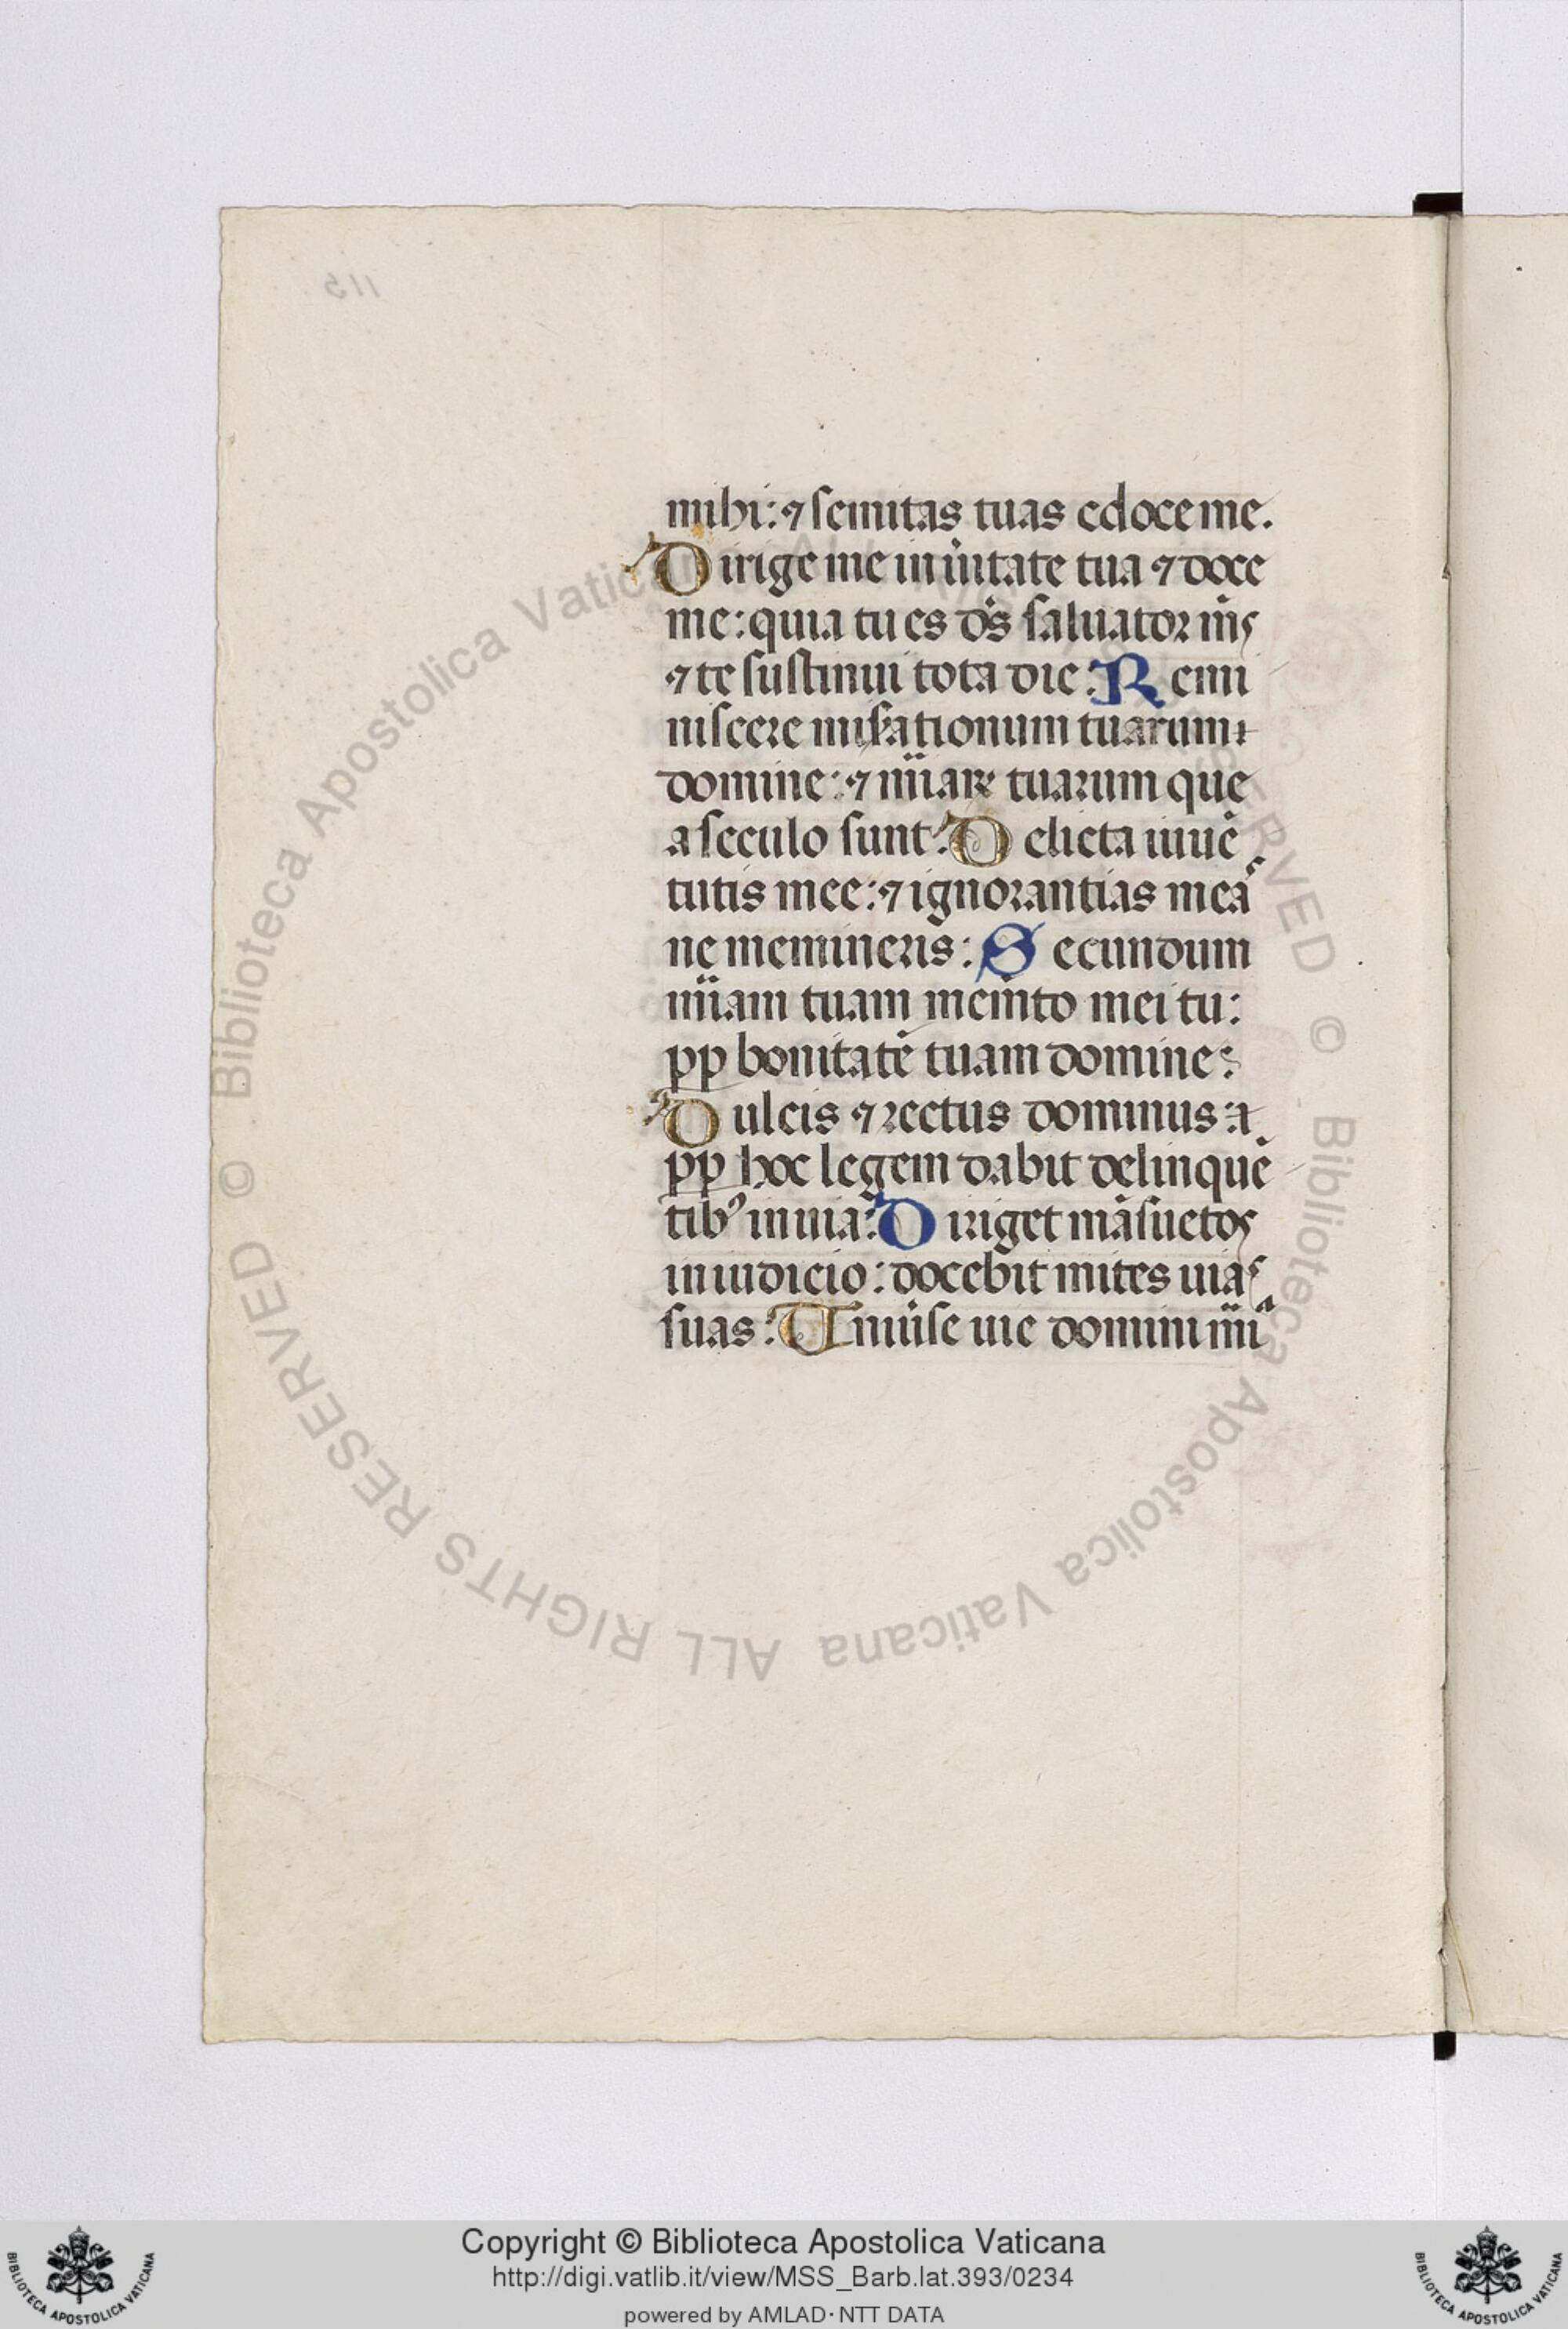 115
mihi: ⁊ semitas tuas edoce me.
Dirige me in ũitate tua ⁊ doce
me: quia tu es dñs saluator ms
⁊ te sustinui tota die: Remi
niscere misẽationum tuarum
domine: ⁊ mĩaꝝ tuarum que
a seculo sunt: Delicta iuuẽ
tutis mee: ⁊ ignorantias meaˢ
ne memineris: Secundum
mĩam tuam memẽto mei tu:
pp bonitatẽ tuam domine:
Dulcis ⁊ rectus dominus:
pp hoc legem dabit delinquẽ
tibꝰ in uia: Diriget mãsuetos
in iudicio: docebit mites uiaˢ
suas: Uniũse uie domini mĩᵃ
© Biblioteca Apostolica Vaticana ALL RIGHTS RESERVED © Biblioteca Apostolica Vaticana ALL RIGHTS RESERVED
Copyright © Biblioteca Apostolica Vaticana
http://digi.vatlib.it/view/MSS_Barb.lat.393/0234
powered by AMLAD · NTT DATA
BIBLIOTECA APOSTOLICA VATICANA
BIBLIOTECA APOSTOLICA VATICANA